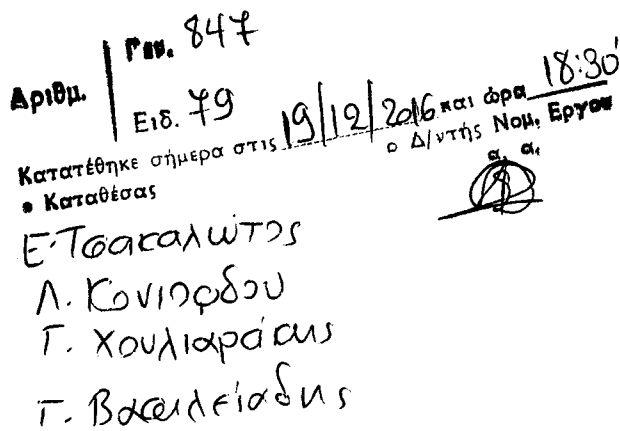 Αριθμ.
Γεν. 847
Ειδ. 79
Κατατέθηκε σήμερα στις 19/12/2016 και ώρα 18:30'
ο Δ/ντής Νομ. Εργου
α. α.
• Καταθέσας
Ε. Τσακαλώτος
Λ. Κονιόρδου
Γ. Χουλιαράκης
Γ. Βασιλειάδης